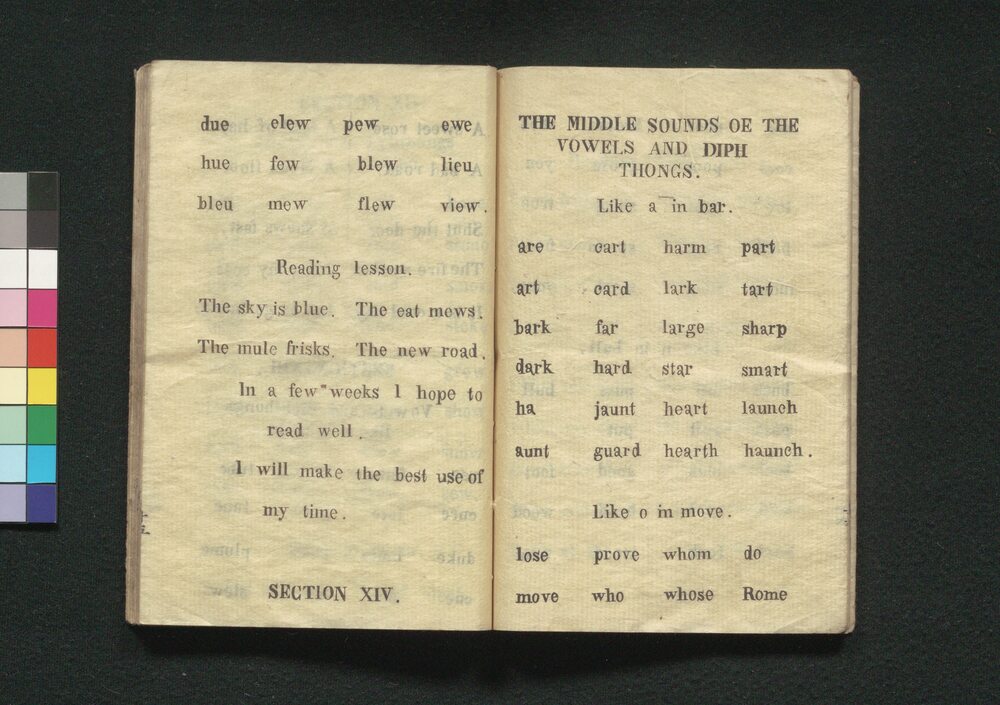 due elew pew ewe
hue few blew lieu
bleu mew flew view.
Reading lesson.
The sky is blue. The eat mews.
The mule frisks. The new road.
In a few weeks I hope to
read well.
I will make the best use of
my time.
SECTION XIV.
THE MIDDLE SOUNDS OE THE
VOWELS AND DIPH
THONGS.
Like a in bar.
are cart harm part
art card lark tart
bark far large sharp
dark hard star smart
ha jaunt heart launch
aunt guard hearth haunch.
Like o in move.
lose prove whom do
move who whose Rome